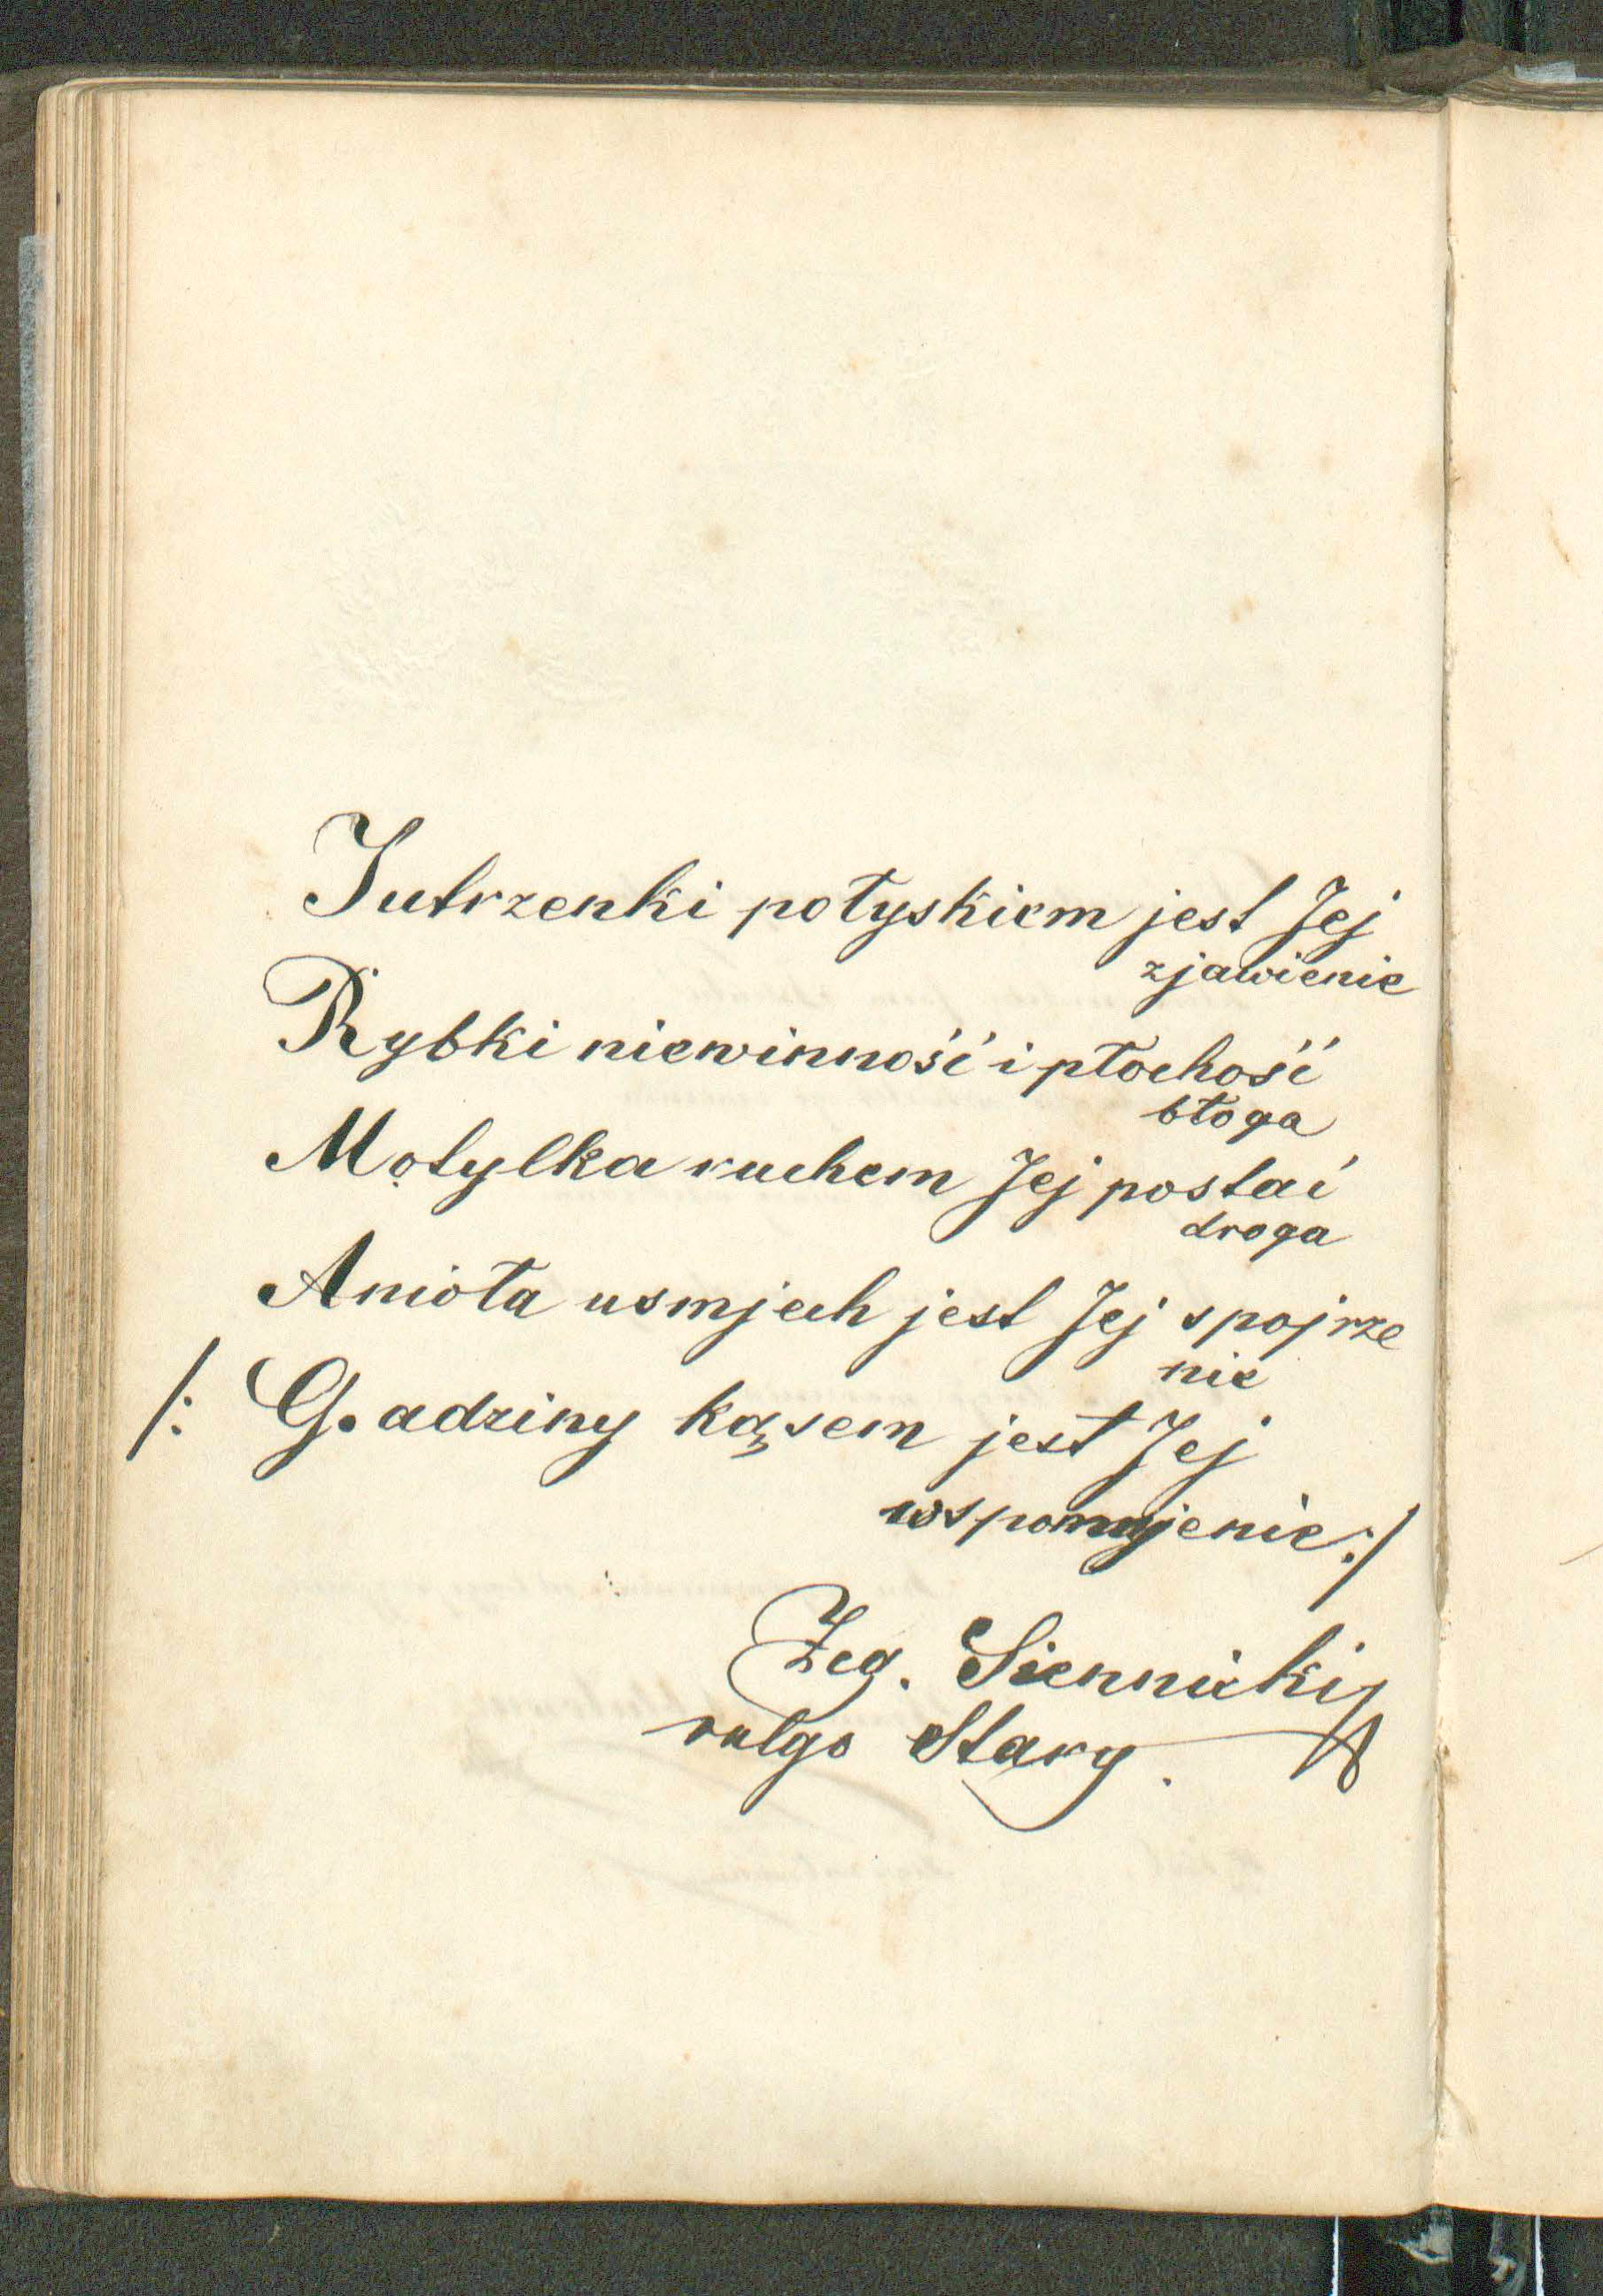 Jutrzenki połyskiem jest Jej
zjawienie
Rybki niewinność i płochość
błoga
Motylka ruchem Jej postać
droga
Anioła usmjech jest Jej spojrze
nie
/: Gadziny kąsem jest Jej
wspomnjenie :/
Zeg. Siennicki
vulgo Stary.